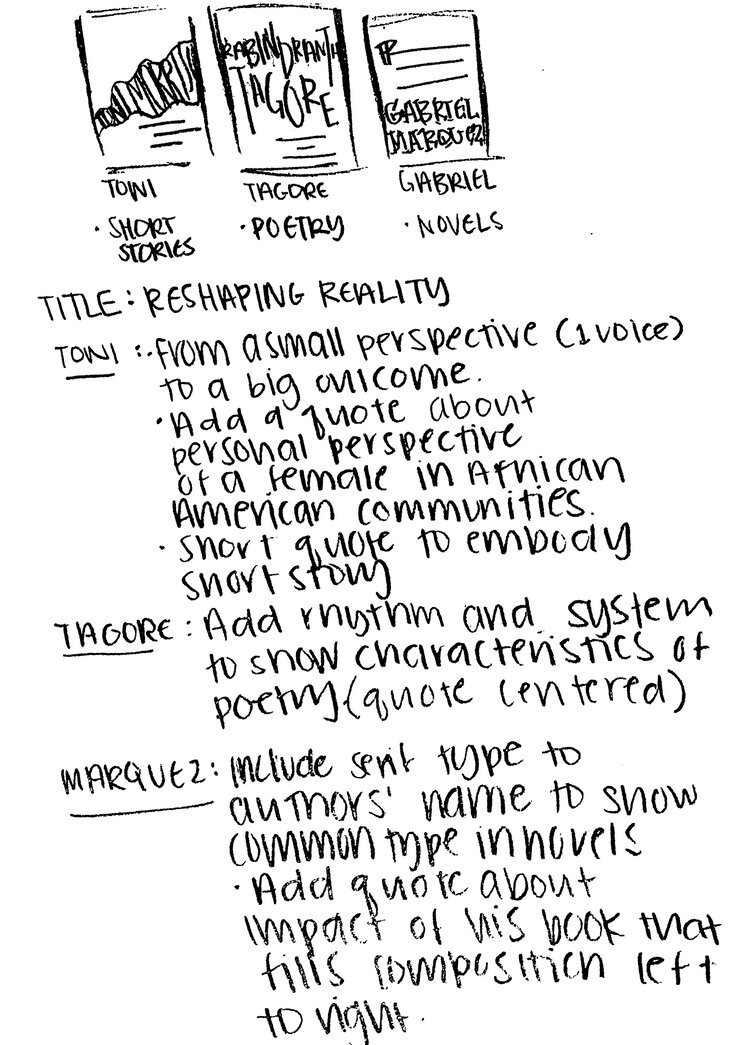 TONI MORRIS
RABINDRANTH
TAGORE
GABRIEL
MARQUEZ
TONI
TAGORE
GABRIEL
· SHORT
STORIES
· POETRY
· NOVELS
TITLE: RESHAPING REALITY
TONI :· From a small perspective (1 voice)
to a big outcome.
· Add a quote about
personal perspective
of a female in African
American communities.
· Short quote to embody
short story
TAGORE: Add rhythm and system
to show characteristics of
poetry (quote centered)
MARQUEZ: Include serif type to
authors' name to show
common type in novels
· Add quote about
impact of his book that
fills composition left
to right.